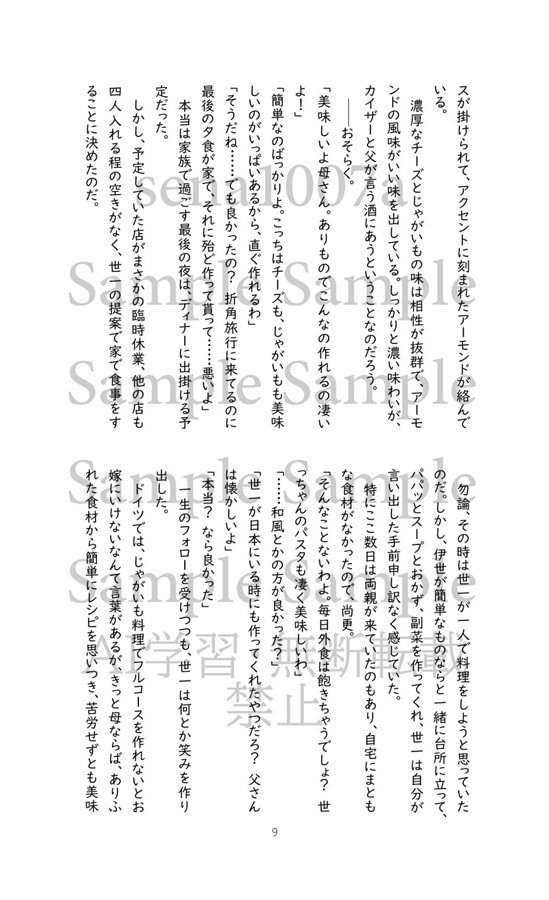 スが掛けられて、アクセントに刻まれたアーモンドが絡んで
いる。
　濃厚なチーズとじゃがいもの味は相性が抜群で、アーモ
ンドの風味がいい味を出している。しっかりと濃い味わいが、
カイザーと父が言う酒にあうということなのだろう。
　――おそらく。
「美味しいよ母さん。ありものでこんなの作れるの凄い
よ！」
「簡単なのばっかりよ。こっちはチーズも、じゃがいもも美味
しいのがいっぱいあるから、直ぐ作れるわ」
「そうだね……でも良かったの？　折角旅行に来てるのに
最後の夕食が家で、それに殆ど作って貰って……悪いよ」
　本当は家族で過ごす最後の夜は、ディナーに出掛ける予
定だった。
　しかし、予定していた店がまさかの臨時休業、他の店も
四人入れる程の空きがなく、世一の提案で家で食事をす
ることに決めたのだ。
　勿論、その時は世一が一人で料理をしようと思っていた
のだ。しかし、伊世が簡単なものならと一緒に台所に立って、
パパッとスープとおかず、副菜を作ってくれ、世一は自分が
言い出した手前申し訳なく感じていた。
　特にここ数日は両親が来ていたのもあり、自宅にまとも
な食材がなかったので、尚更。
「そんなことないわよ。毎日外食は飽きちゃうでしょ？　世
っちゃんのパスタも凄く美味しいわ」
「……和風とかの方が良かった？」
「世一が日本にいる時にも作ってくれたやつだろ？　父さん
は懐かしいよ」
「本当？　なら良かった」
　一生のフォローを受けつつも、世一は何とか笑みを作り
出した。
　ドイツでは、じゃがいも料理でフルコースを作れないとお
嫁にいけないなんて言葉があるが、きっと母ならば、ありふ
れた食材から簡単にレシピを思いつき、苦労せずとも美味
9
Sample Sample
Sample Sample
Sample Sample
Sample Sample
AI学習 無断転載
禁止